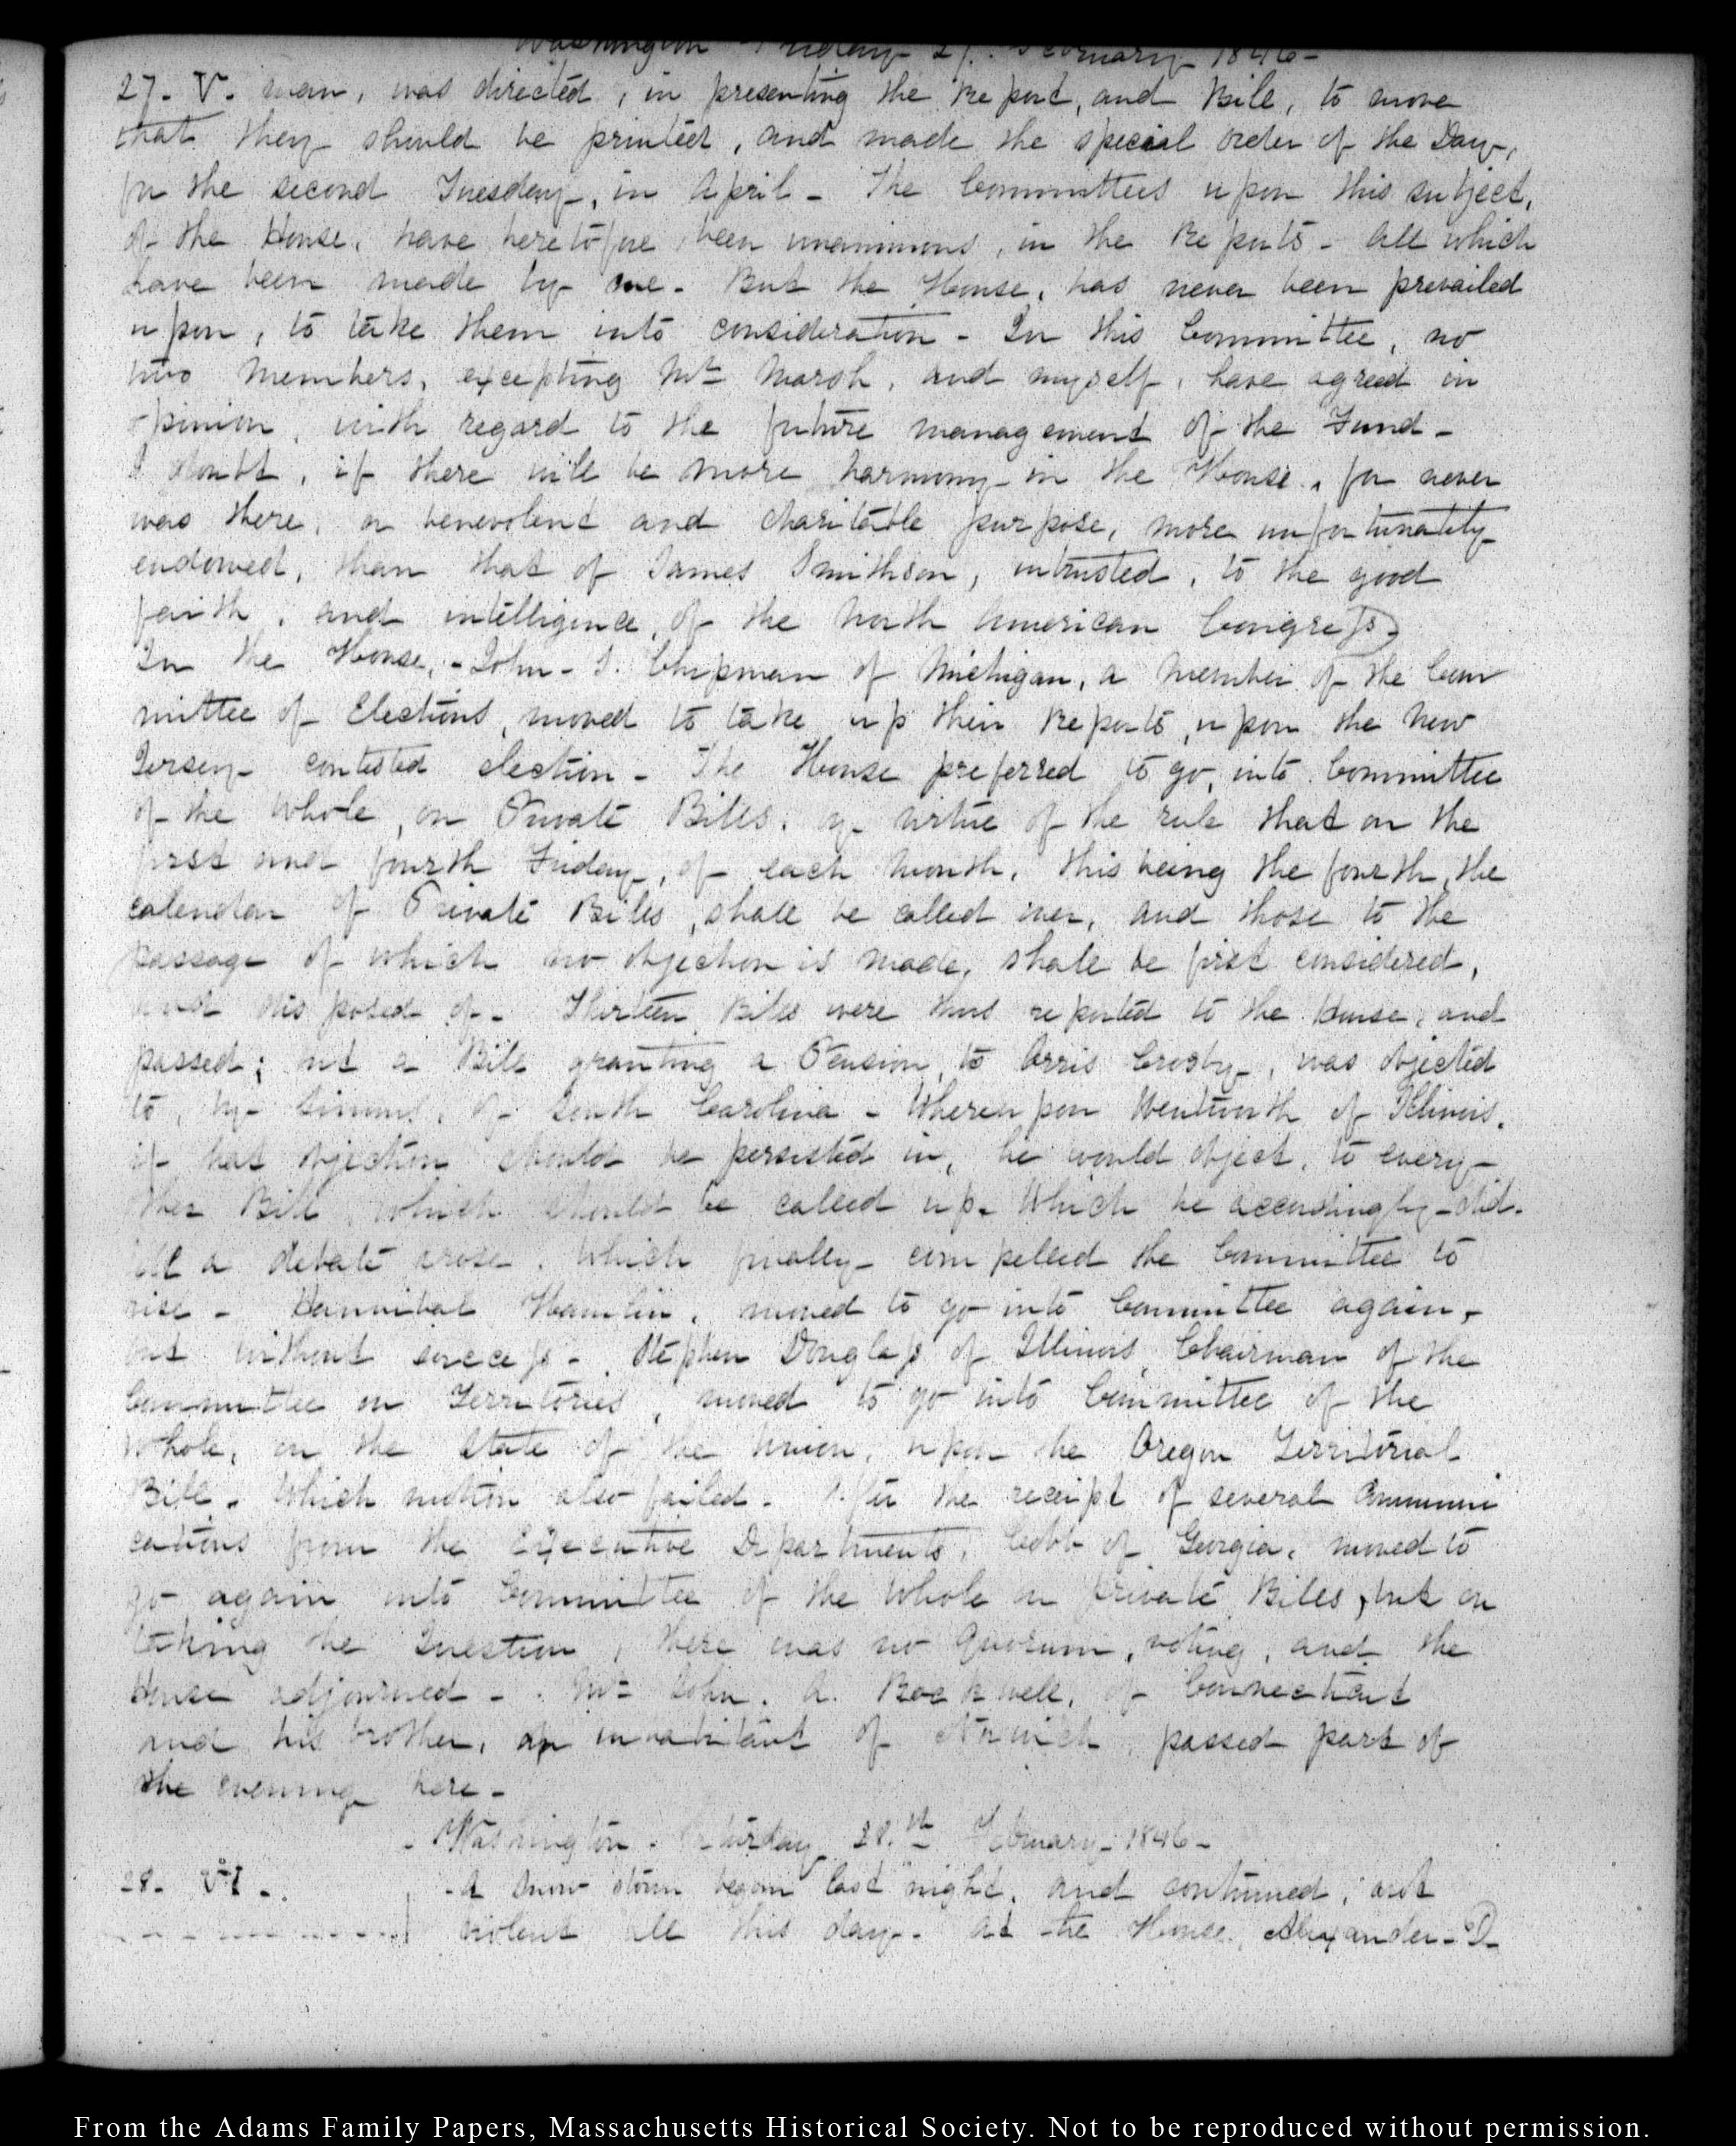 Washington Friday 27. February 1846-
27. V. man, was directed, in presenting the Report, and Bill, to move
that they should be printed, and made the special order of the Day,
for the second Tuesday, in April - The Committees upon this subject,
of the House, have heretofore been unanimous, in the Reports - all which
have been made by me. But the House, has never been prevailed
upon, to take them into consideration - In this Committee, no
two Members, excepting Mr Marsh, and myself, have agreed in
opinion, with regard to the future management of the Fund -
I doubt, if there will be more harmony in the House, for never
was there, a benevolent and charitable purpose, more unfortunately
endowed, than that of James Smithson, intrusted, to the good
faith, and intelligence, of the North American Congress.
In the House, - John - S. Chipman of Michigan, a member of the Com
mittee of Elections, moved to take up their Reports, upon the New
Jersey contested election - The House preferred to go, into Committee
of the Whole, on Private Bills, by virtue of the rule that on the
first and fourth Friday, of each Month, this being the fourth, the
calendar of Private Bills, shall be called over, and those to the
passage of which no objection is made, shall be first considered,
and disposed of - Thirteen Bills were thus reported to the House, and
passed; but a Bill granting a Pension, to Orris Crosby, was objected
to, by Simms, of South Carolina - Whereupon Wentworth of Illinois,
if that objection should be persisted in, he would object, to every
other Bill which should be called up. Which he accordingly did.
till a debate arose, which finally compelled the Committee to
rise - Hannibal Hamlin, moved to go into Committee again,
but without success - Stephen Douglass of Illinois, Chairman of the
Committee on Territories, moved to go into Committee of the
Whole, on the State of the Union, upon the Oregon Territorial
Bill. Which motion also failed - After the receipt of several Communi
cations from the Executive Departments, Cobb of Georgia, moved to
go again into Committee of the Whole on private Bills, but on
taking the Question, there was no Quorum, voting, and the
House adjourned - Mr John. A. Rockwell, of Connecticut
and his brother, an inhabitant of Norwich, passed part of
the evening here -
Washington. Saturday 28.th February - 1846 -
28. VI. - A snow storm began last night, and continued, not
violent all this day. At the House, Alexander - D
From the Adams Family Papers, Massachusetts Historical Society. Not to be reproduced without permission.